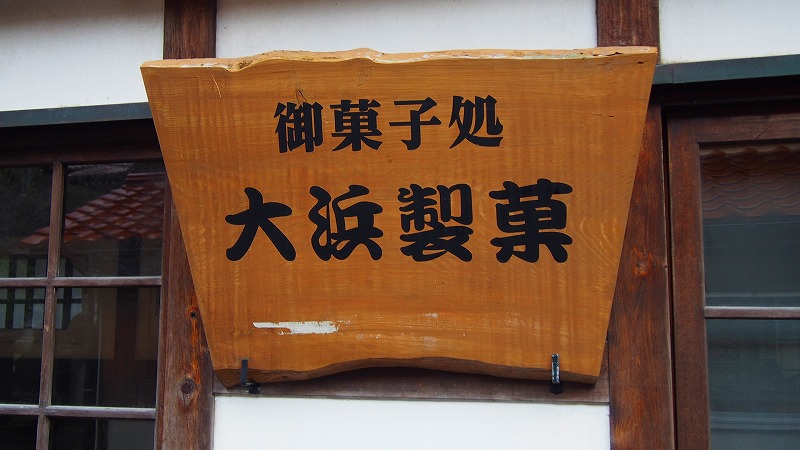 御菓子処
大浜製菓